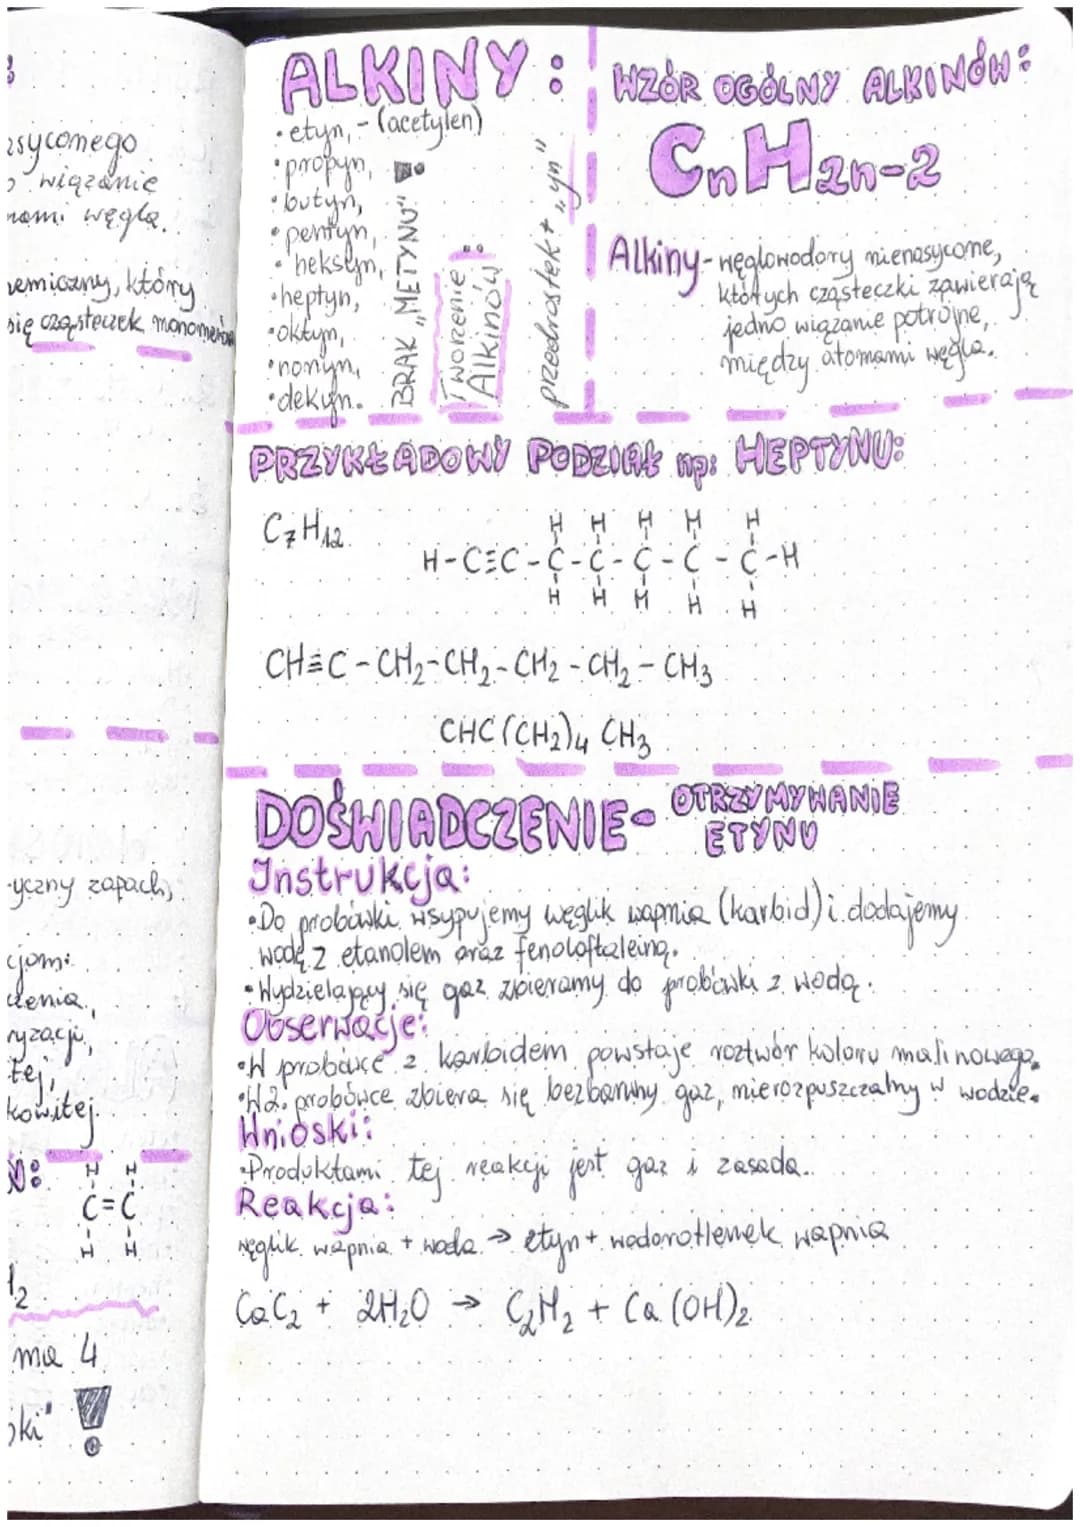 esyconego
wiązanie
nami węgla.
hemiczny, który
się cząsteczek monomerów
yczny zapach,
cjom:
czenia,
ryzacji,
tej,
kowitej.
H H
C=C
H H
ma 4
ki"
ALKINY:
• etyn, - (acetylen)
• propyn,
• butyn,
• pentyn,
• heksyn,
• heptyn,
• oktyn,
• nonyn,
• dekyn.
BRAK „METYNU" !
Tworzenie
Alkinów:
przedrostek + „yn"
WZÓR OGÓLNY ALKINÓW:
CnH2n-2
Alkiny - węglowodory nienasycone,
których cząsteczki zawierają
jedno wiązanie potrójne,
między atomami węgla.
PRZYKŁADOWY PODZIAŁ np: HEPTYNU:
C7H12
H H H H H
H-C≡C-C-C-C-C-C-H
H H H H H
CH≡C-CH2-CH2-CH2-CH2-CH3
CHC(CH2)4CH3
DOŚWIADCZENIE- OTRZYMYWANIE
ETYNU
Instrukcja:
• Do probówki wsypujemy węglik wapnia (karbid) i dodajemy
wodę z etanolem oraz fenoloftaleiną.
• Wydzielający się gaz zbieramy do probówki z wodą.
Obserwacje:
• W probówce z karbidem powstaje roztwór koloru malinowego.
• W 2. probówce zbiera się bezbarwny gaz, nierozpuszczalny w wodzie.
Wnioski:
• Produktami tej reakcji jest gaz i zasada.
Reakcja:
węglik wapnia + woda → etyn + wodorotlenek wapnia
CaC2 + 2H2O → C2H2 + Ca(OH)2